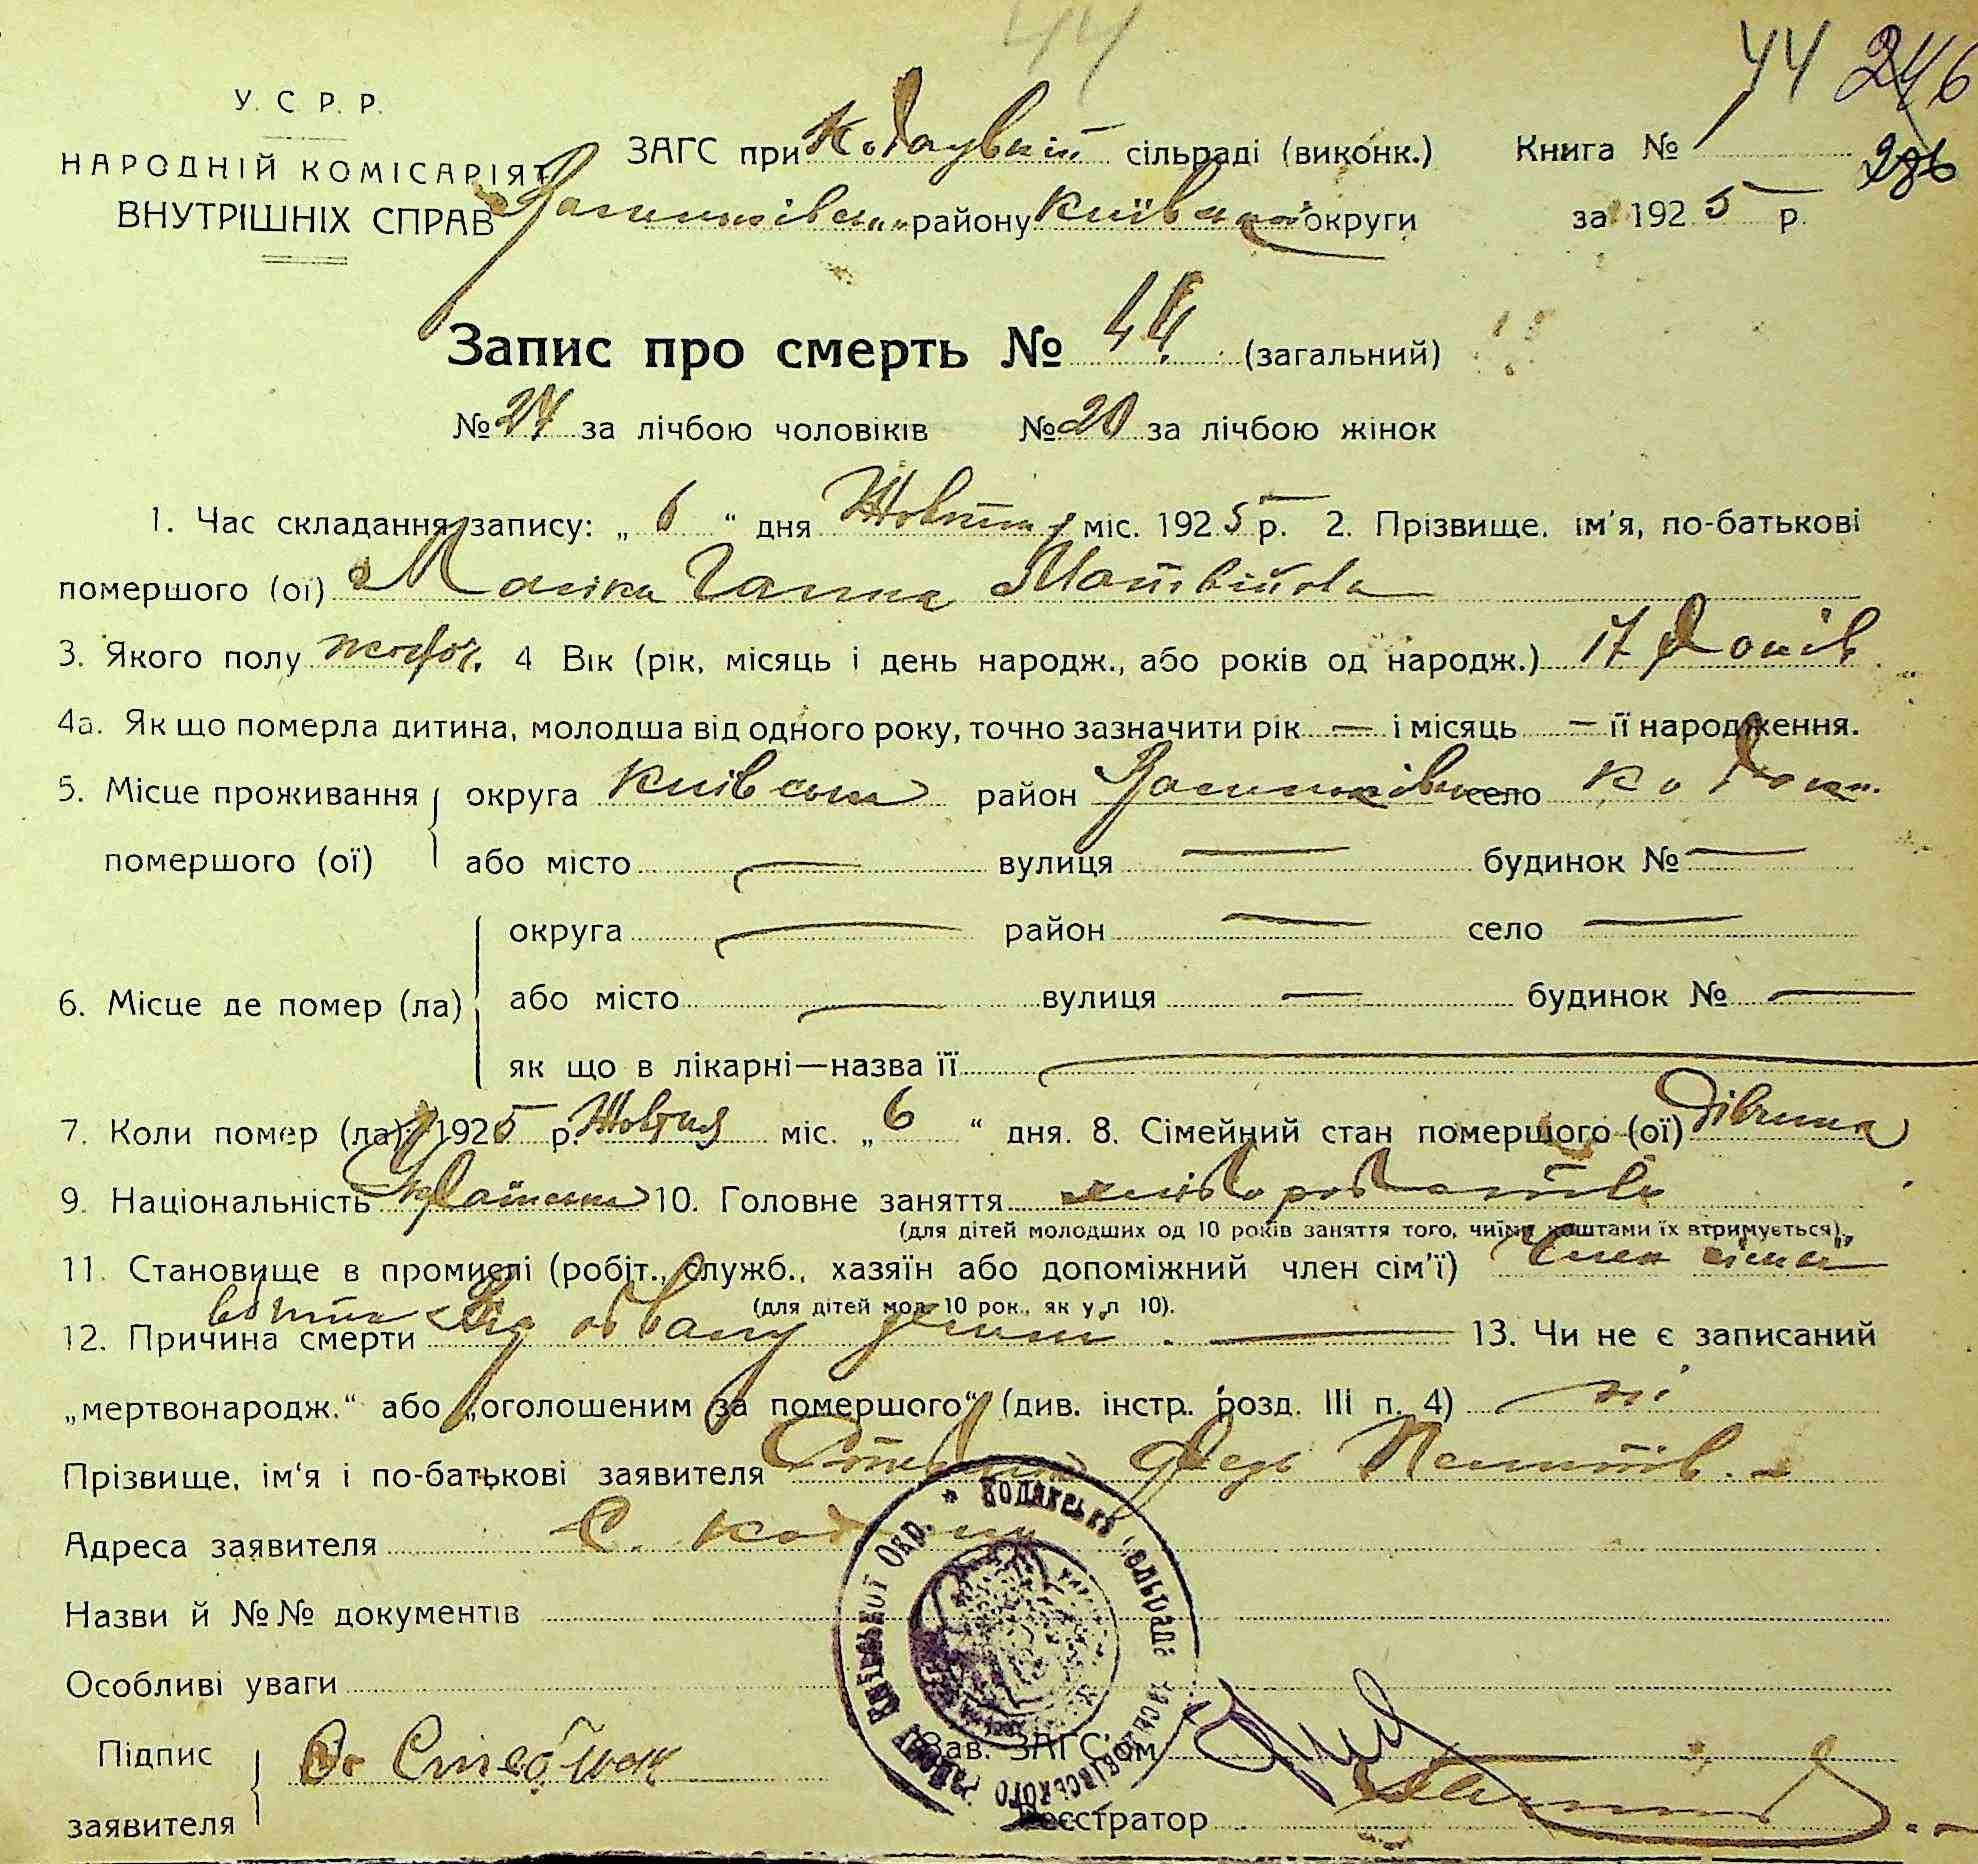 44
44 246
286
У. С. Р. Р.
НАРОДНІЙ КОМІСАРІЯТ
ВНУТРІШНІХ СПРАВ
ЗАГС при Кодацькій сільраді (виконк.) Книга № 1
району Київської округи за 1925 р.
Запис про смерть № 44 (загальний)
№ 24 за лічбою чоловіків № 20 за лічбою жінок
1. Час складання запису: „ 6 “ дня Жовтня міс. 1925 р. 2. Прізвище, ім'я, по-батькові
помершого (ої) Ганна Матвійова
3. Якого полу 4 Вік (рік, місяць і день народж., або років од народж.) 17 років
4а. Як що померла дитина, молодша від одного року, точно зазначити рік — і місяць — її народження.
5. Місце проживання округа Київська район село Кодаки
помершого (ої) або місто — вулиця — будинок № —
округа — район — село —
6. Місце де помер (ла) або місто — вулиця — будинок № —
як що в лікарні—назва її —
7. Коли помер (ла) 1925 р. Жовтня міс. „ 6 “ дня. 8. Сімейний стан помершого (ої) Дівчина
9. Національність 10. Головне заняття хліборобство
(для дітей молодших од 10 років заняття того, чиїми коштами їх втримується).
11. Становище в промислі (робіт., служб., хазяїн або допоміжний член сім'ї) Член сімьи
(для дітей мол. 10 рок., як у п 10).
12. Причина смерти вбита Від обвалу глини. — 13. Чи не є записаний
„мертвонародж.“ або „оголошеним за помершого“ (див. інстр. розд. III п. 4) ні
Прізвище, ім'я і по-батькові заявителя
Адреса заявителя С. Кодаки
Назви й №№ документів
Особливі уваги
Підпис
заявителя
Зав. ЗАГС'ом
Реєстратор
* Кодакська сільрада Васильківського району Київської Окр.